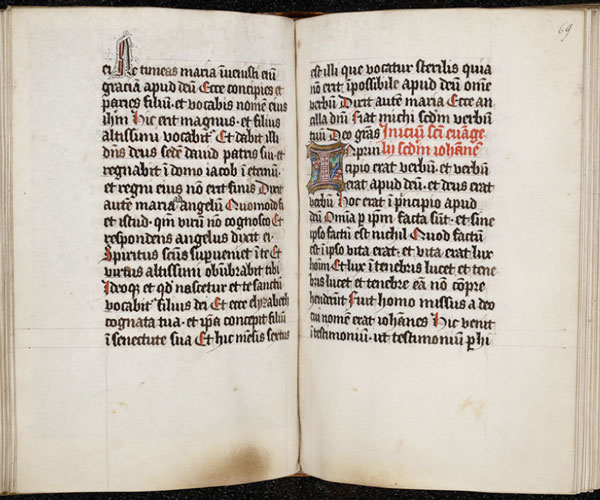 ei Ne timeas maria ïuenisti eni̅
gracia̅ apud deu̅ Ecce concipies et
paries filiu̅ · et vocabis nome̅ eius
ihm̅ Hic erit magnus · et filius
altissimi vocabit̅ Et dabit illi
dn̅s deus sede̅ dauid patris sui · et
regnabit i̅ domo iacob i̅ eternu̅ ·
et regni eius no̅ erit finis Dixit
aute̅ maria ad angelu̅ Quomodo fi
et istud · qm̅ viru̅ no̅ cognosco Et
respondens angelus dixit ei ·
Spiritus sc̅us supueniet i̅ te Et
virtus altissimi obu̅brabit tibi
Ideoque et qd̅ nascetur ex te sanctu̅
vocabit̅ filius dei Et ecce elyzabeth
cognata tua · et ip̅a concepit filiu̅
i̅ senectute sua Et hic me̅sis sextus
69
est illi que vocatur sterilis quia
no̅ erit i̅possibile apud deu̅ om̅e
verbu̅ Dixit aute̅ maria Ecce an
cilla dn̅i Fiat michi sc̅dm verbu̅
tuu̅ Deo gr̅as Iniciu̅ sc̅i eua̅ge
In prin lii sc̅dm ioha̅ne̅
cipio erat verbu̅ · et verbu̅
erat apud deu̅ · et deus erat
verbu̅ Hoc erat i̅ p̅ncipio apud
deu̅ Om̅ia p̅ ip̅m facta su̅t · et sine
ipso factu̅ est nichil Quod factu̅
est i̅ ipso vita erat · et vita erat lux
ho̅im Et lux i̅ tenebris lucet et tene
bris lucet et tenebre ea̅ no̅ co̅pre
henderu̅t Fuit homo missus a deo
cui nomen erat ioha̅nes Hic venit
i̅ testimoniu̅ · ut testimoniu̅ p̅hi